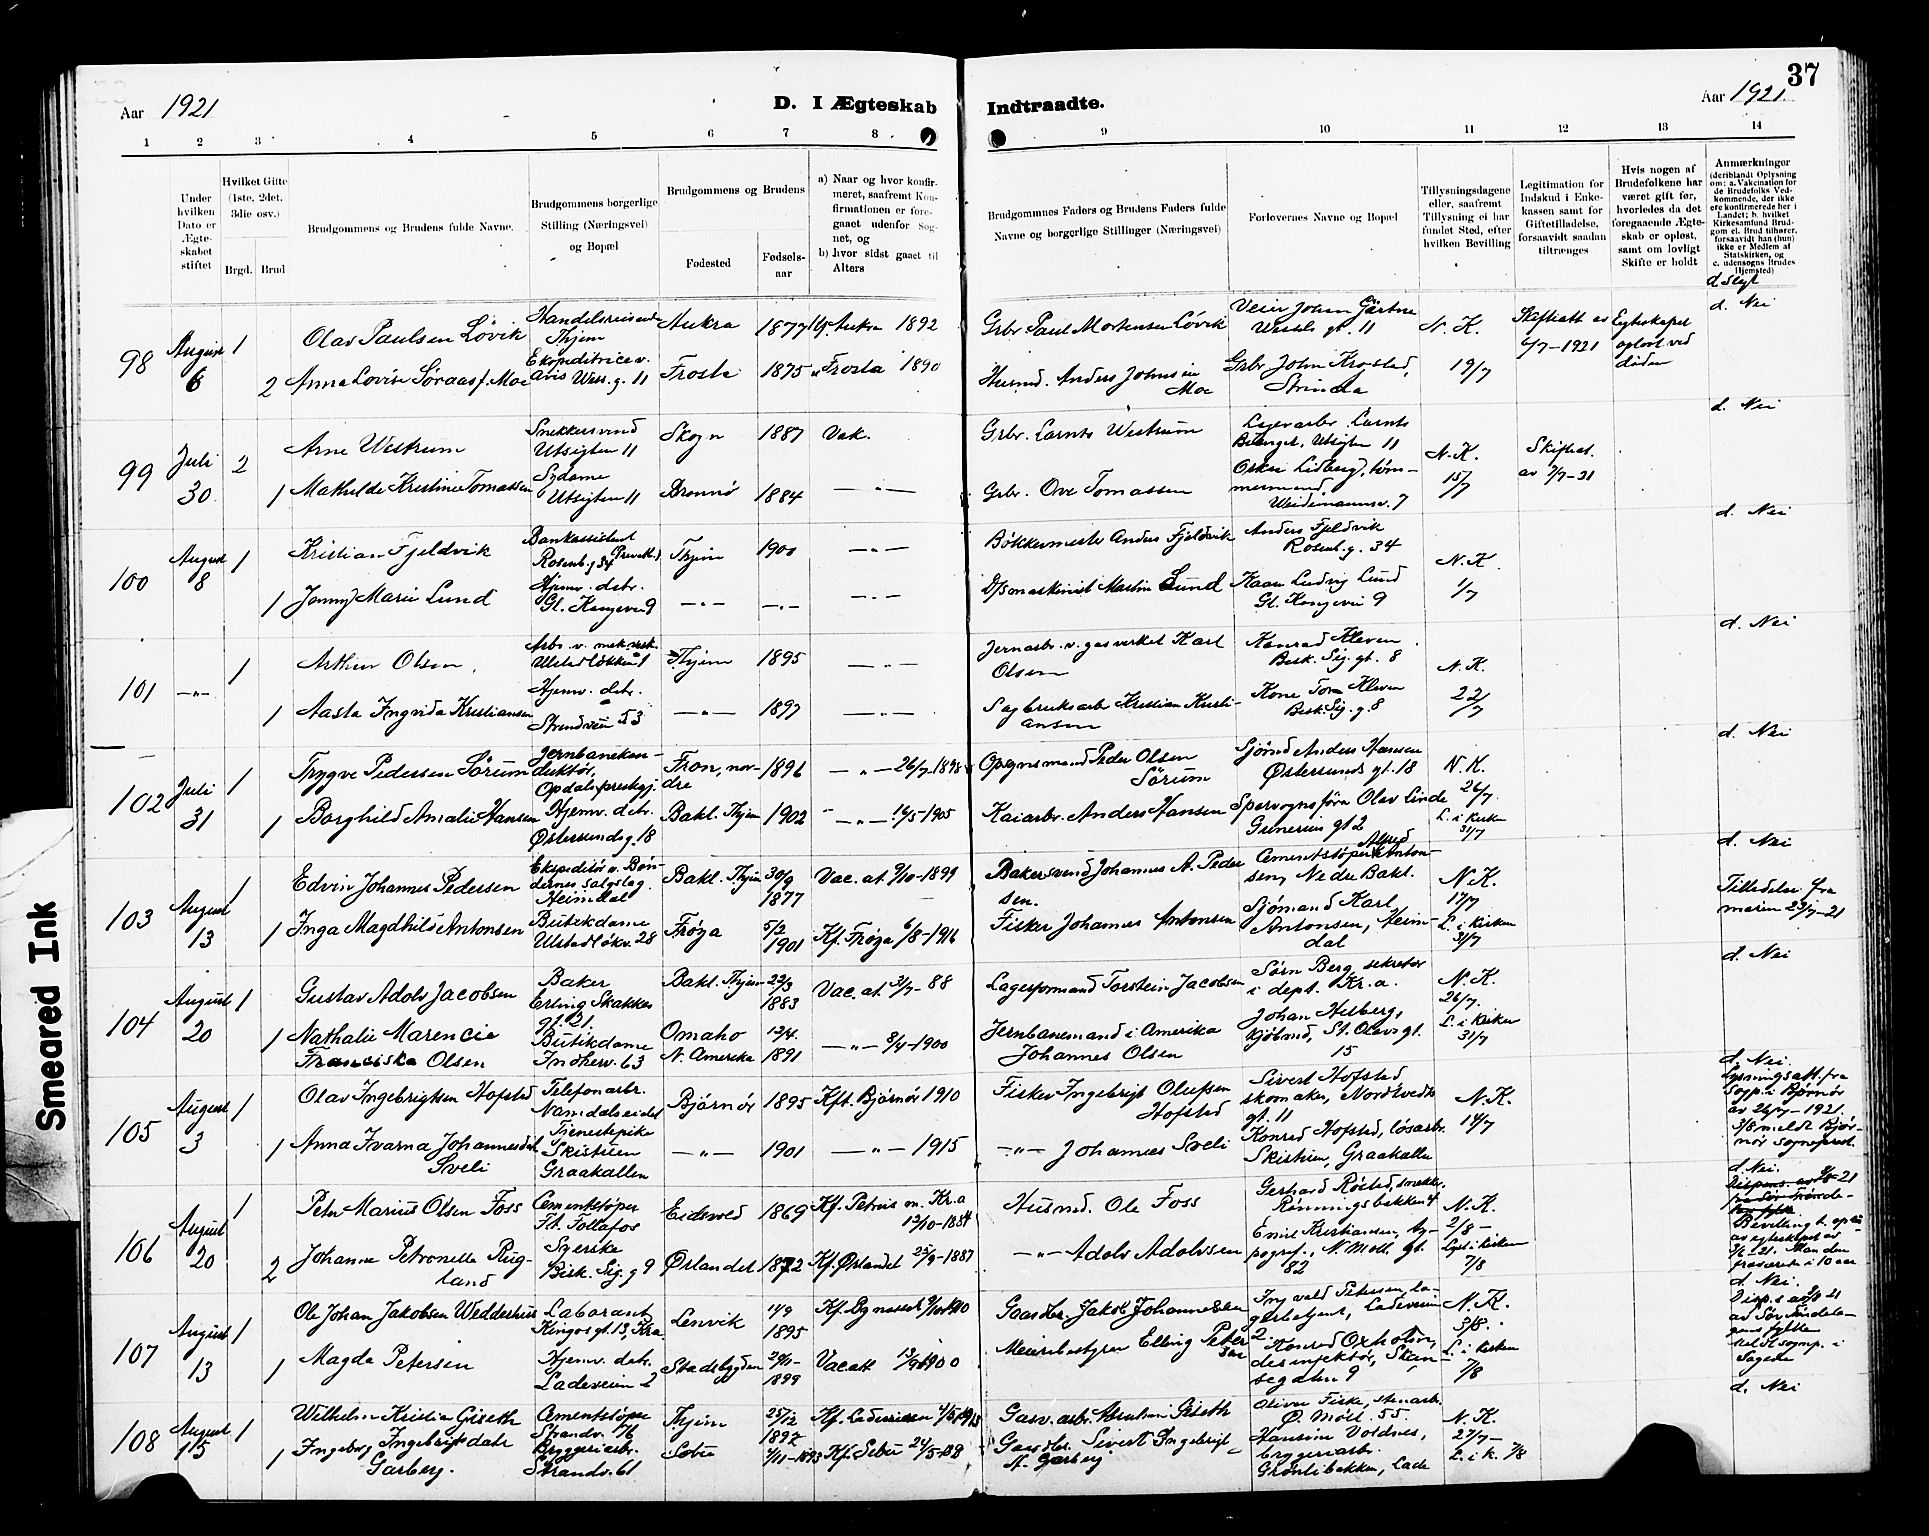 37
Aar 1921
D. I Ægteskab
Indtraadte.
Aar 1921.
1 2 3 4 5 6 7 8
9 10 11 12 13 14
Under hvilken Dato er Ægteskabet stiftet
Hvilket Gifte (1ste, 2det, 3die osv.)
Brgd. Brud
Brudgommens og Brudens fulde Navne.
Brudgommens borgerlige Stilling (Næringsvei) og Bopæl
Brudgommens og Brudens
Fødested
Fødselsaar
a) Naar og hvor konfirmeret, saafremt Konfirmationen er foregaaet udenfor Sognet, og
b) hvor sidst gaaet til Alters
Brudgommens Faders og Brudens Faders fulde Navne og borgerlige Stillinger (Næringsvei)
Forlovernes Navne og Bopæl
Tillysningsdagene eller, saafremt Tillysning ei har fundet Sted, efter hvilken Bevilling
Legitimation for Indskud i Enkekassen samt for Giftetilladelse, forsaavidt saadan tiltrænges
Hvis nogen af Brudefolkene har været gift før, hvorledes da det foregaaende Ægteskab er opløst, samt om lovligt Skifte er holdt
Anmærkninger (deriblandt Oplysning om: a. Vakcination for de Brudefolks Vedkommende, der ikke ere konfirmerede her i Landet; b. hvilket Kirkesamfund Brudgom el. Brud tilhører, forsaavidt han (hun) ikke er Medlem af Statskirken, og c. udensogns Brudes Hjemsted)
d. Slegt
98 August 6
1 Olav Paulsen Løvik
Handelsreisende Thjem
Aukra 1877 Kf. Aukra 1892
Grbr. Paul Mortensen Løvik
Wessels gt. 11
N. K. 19/7
Skifteatt av 6/7-1921
Egteskapet opløst ved døden
d. Nei
2 Anna Lovise Søraas f. Moe
Ekspeditrice v. avis Wess. g. 11
Frosta 1875 " Frosta 1890
Husmd. Anders Johnsen Moe
Grbr. John Krogstad, Strinda
99 Juli 30
2 Arne Westrum
Snekkersvend Utsigten 11
Skogn 1887 Vak.
Grbr. Lornts Westrum
Lagerarbr. Lornts Utsigten 11
N. K. 15/7
Skifteat. av 7/7-21
d. Nei
1 Mathilde Kristine Tomassen
Sydame Utsigten 11
Brønnø 1884 — " —
Grbr. Ove Tomassen
Oskar Lidberg, tømmermand, Weidemannsv. 7
100 August 8
1 Kristian Fjeldvik
Bankassistent Rosenb. g. 34
Thjem 1900 — " —
Bøkkermester Anders Fjeldvik
Anders Fjeldvik Rosenb. g. 34
N. K. 1/7
d. Nei
1 Jenny Marie Lund
Hjemv. datr. Gl. Kongevei 9
— " — — " — — " —
D/smaskinist Martin Lund
Kaare Ludvig Lund Gl. Kongevei 9
101 — " —
1 Arthur Olsen
Arb. v. mek. verk. Ulstadløkken 1
Thjem 1895 — " —
Jernarbr. v. gasverket Karl Olsen
Konrad Kleven Bisk. Sig. gt. 8
N. K. 22/7
d. Nei
1 Aasta Ingvida Kristiansen
Hjemv. datr. Strandveien 53
— " — 1897 — " —
Sagbruksarb. Kristian Kristiansen
Kone Tora Kleven Bisk. Sig. g. 8
102 Juli 31
1 Trygve Pedersen Sørum
Jernbanekonduktør, Opdals prestgj.
Fron, nordre 1896 — " — 26/7-1898
Opsynsmand Peder Olsen Sørum
Sjømd Anders Hansen Østersunds gt. 18
N. K. 26/7 L. i Kirken 31/7
d. Nei
1 Borghild Amalie Hansen
Hjemv. datr. Østersundsg. 18
Bakl. Thjem 1902 — " — 16/5-1905
Kaiarbr. Anders Hansen
Sporvognsfører Olav Linde Gunerius gt 2
103 August 13
1 Edvin Johannes Pedersen
Ekspeditør v. Bøndernes salgslag Heimdal
Bakl. Thjem 30/9 1877 Vac. at. 9/10-1899
Bakersvend Johannes A. Pedersen.
Cementstøper Alfred Antonsen, Nedre Bakl.
N. K. 17/7 L. i Kirken 31/7
d. Nei
Tilladelse fra marin 23/7-21
1 Inga Magdhild Antonsen
Butikdame Ulstadløkv. 28
Frøya 5/2 1901 Kf. Frøya 6/8-1916
Fisker Johannes Antonsen
Sjømand Karl Antonsen, Heimdal
104 August 20
1 Gustav Adolv Jacobsen
Baker Erling Skakkes gt. 21.
Bakl. Thjem 22/3 1883 Vac. at. 3/7-88
Lagerformand Torstein Jacobsen
Sørn Berg, sekretær i dept. Kr.a.
N. K. 26/7. L. i Kirken 31/7
d. Nei
1 Nathalie Marencie Franciska Olsen
Butikdame Indherv. 63
Omaho N. Amerika 12/4. 1891 — " — 8/4-1900
Jernbanemand i Amerika Johannes Olsen
Johan Helberg, kjøbmd, St. Olavs gt. 15
105 August 3
1 Olav Ingebrigtsen Hofstad
Telefonarbr. Namdalseidet
Bjørnør 1895 Kft. Bjørnør 1910
Fisker Ingebrigt Olufsen Hofstad
Sivert Hofstad skomaker, Nordtvedts gt. 11
N. K. 14/7
d. Nei.
Lysningsatt. fra Sogp. i Bjørnør av 26/7-1921. 3/8 meldt Bjørnør Sogneprest.
1 Anna Ivarna Johannesdat. Sveli
Tjenestepike Skistuen Graakallen
— " — 1901 — " — 1915
— " — Johannes Sveli
Konrad Hofstad, løsarbr. Skistuen, Graakallen
106 August 20
1 Peter Marius Olsen Foss
Cementstøper Ft. Follafos
Eidsvold 1869 Kf. Petrus m. Kr.a 12/10-1884
Husmd. Ole Foss
Gerhard Røstad, snekker, Rønningsbakken 4
N. K. 2/8- Lyst i Kirken 7/8
d. Nei.
2 Johanne Petronelle Rugland
Syerske Bisk. Sig. g 9
Ørlandet 1872 Kf. Ørlandet 25/9-1887
— " — Adolv Adolvsen
Emil Kristiansen, typograf., N. Møll. gt. 82
107 August 13
1 Ole Johan Jakobsen Wedderhus
Laborant Kingos gt. 13, Kra
Lenvik 14/9 1895
Gaardbr. Jakob Johannessen
Ingvald Petersen, lagerbetjent, Ladeveien 2.
N. K. 3/8. L. i Kirken 7/8
d. Nei.
1 Magda Petersen
Hjemv. datr. Ladeveien 2
Stadsbygden 1899 Vac. att 13/9-1900
Meieribestyrer Elling Petersen
Konrad Oxholm, desinfektør, Skansegaten 9
108 August 15
1 Wilhelm Kristian Giseth
Cementstøper Strandv. 76
Thjem 25/12 1892
Gasv. arbr. Abraham Giseth
Oliver Fiske, stenarbr. Ø. Møll. 55.
N. K. 27/7- L. i K. 7/8
d. Nei
1 Ingeborg Ingebrigtsdatr Garberg.
Bryggeriarbr. Strandv. 61
Selbu Kf. Selbu
Gaardbr. Sivert Ingebrigt. A. Garberg
Hansine Voldnes, bryggeriarbr. Grønlibakken, Lade
Smeared Ink